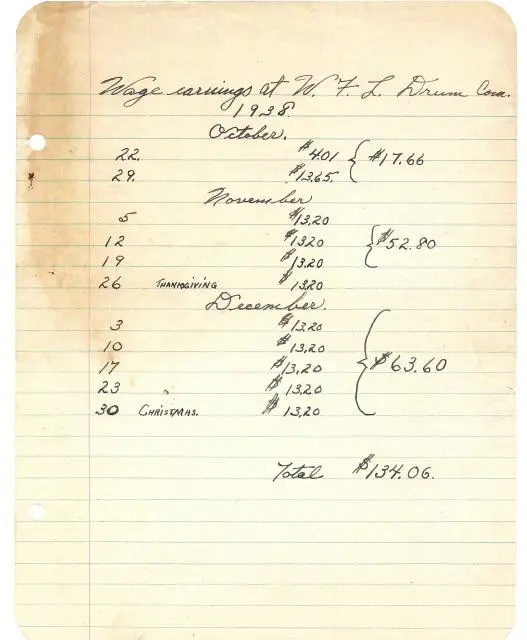 Wage earnings at W. F. L. Drum Com.
1938.
October.
22. $4.01 $17.66
29. $13.65.
November
5 $13.20
12 $13.20 $52.80
19 $13.20
26 THANKSGIVING $13.20
December.
3 $13.20
10 $13.20
17 $13.20 $63.60
23 $13.20
30 CHRISTMAS. $13.20
Total $134.06.